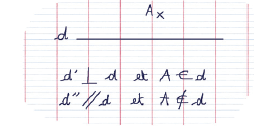 A x
d
d' ⊥ d et A ∈ d
d'' // d et A ∉ d